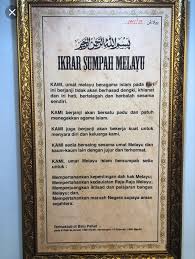 بسم الله الرحمن الرحيم
IKRAR SUMPAH MELAYU
KAMI, umat melayu beragama islam pada hari
ini berjanji tidak akan berhasad dengki, khianat
dan iri hati, bertelagah dan berbalah sesama
sendiri.
KAMI berjanji akan bersatu padu dan patuh
menegakkan agama islam.
KAMI juga berjanji akan bekerja kuat untuk
masyarakat diri dan keluarga kami.
KAMI sedia bersaing sesama umat Melayu dan
kaum-kaum lain dengan jujur dan terhormat.
KAMI, umat Melayu Islam bersumpah setia
untuk :
Mempertahankan kepentingan dan hak Melayu;
Mempertahankan kedaulatan Raja-Raja Melayu;
Mempertahankan institusi dan pelajaran bangsa
Melayu; dan
Mempertahankan maruah Negara supaya aman
sejahtera.
Termaktub di Batu Pahat